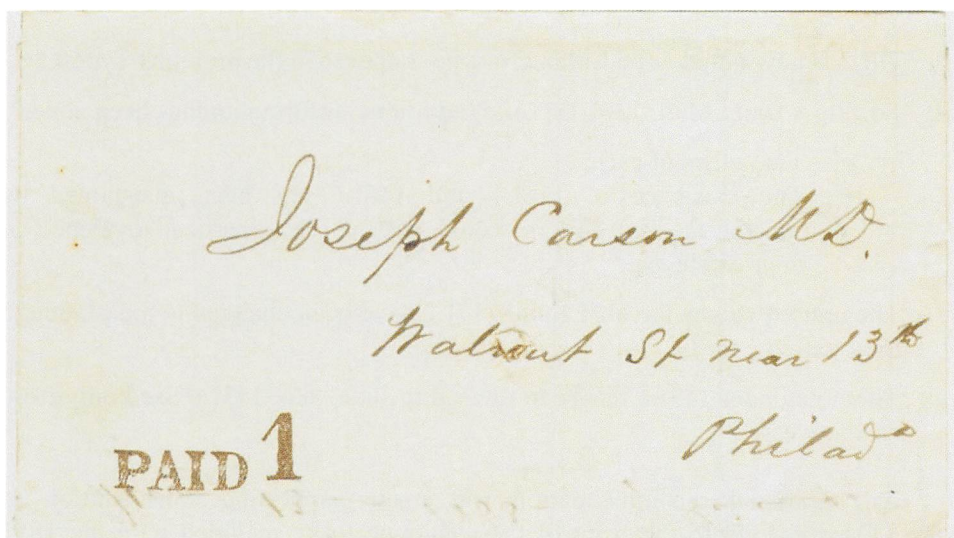 Joseph Carson M.D.
Walnut St near 13th
Philada
PAID 1